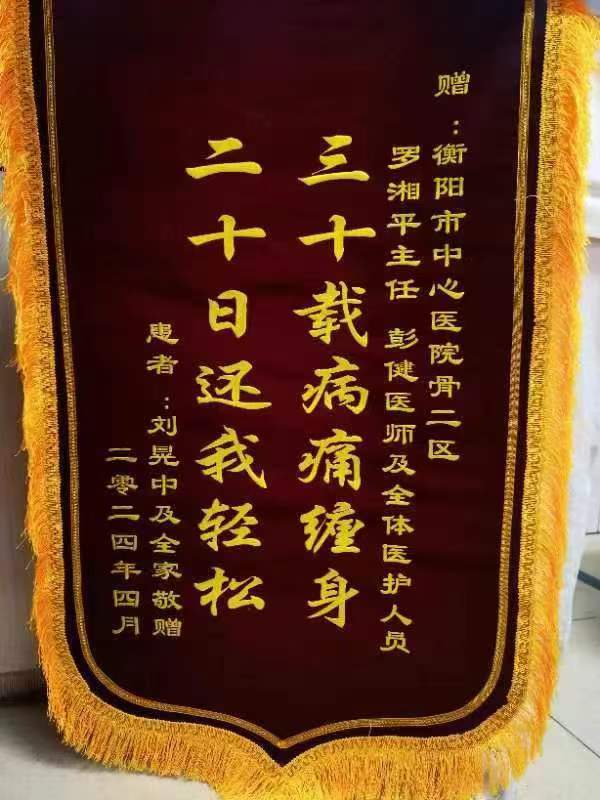 赠：衡阳市中心医院骨二区
罗湘平主任 彭健医师及全体医护人员
三十载病痛缠身
二十日还我轻松
患者：刘晃中及全家敬赠
二零二四年四月